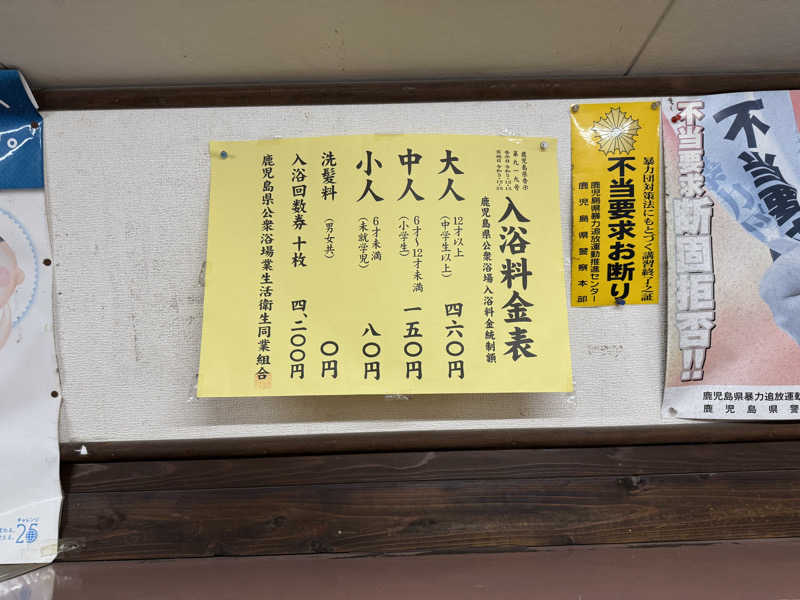 入浴料金表
鹿児島県告示
第九一九号
鹿児島県公衆浴場入浴料金統制額
大人
12才以上
(中学生以上)
四六〇円
中人
6才〜12才未満
(小学生)
一五〇円
小人
6才未満
(未就学児)
八〇円
洗髪料
(男女共)
〇円
入浴回数券 十枚
四、二〇〇円
鹿児島県公衆浴場業生活衛生同業組合
暴力団対策法にもとづく講習終了之証
不当要求お断り
鹿児島県暴力追放運動推進センター
鹿児島県警察本部
不当要求断固拒否!!
不当
鹿児島県暴力追放運動
鹿児島県警
チャレンジ
25